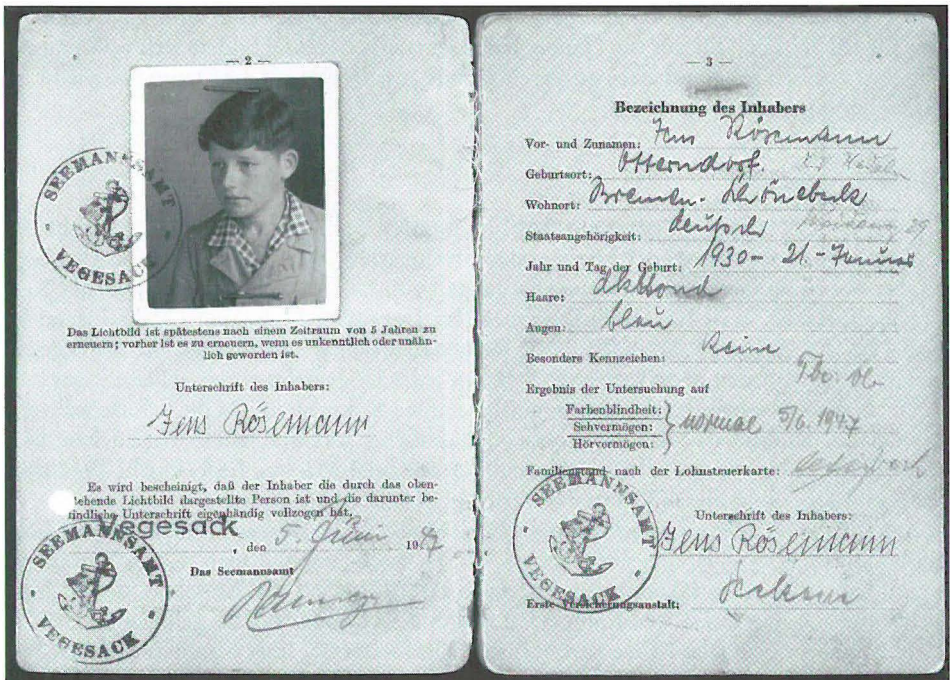 — 2 —
SEEMANNSAMT
VEGESACK
Das Lichtbild ist spätestens nach einem Zeitraum von 5 Jahren zu
erneuern; vorher ist es zu erneuern, wenn es unkenntlich oder unähn-
lich geworden ist.
Unterschrift des Inhabers:
Jens Rösemann
Es wird bescheinigt, daß der Inhaber die durch das oben-
stehende Lichtbild dargestellte Person ist und die darunter be-
findliche Unterschrift eigenhändig vollzogen hat.
Vegesack, den 5. Juni 1947
Das Seemannsamt
SEEMANNSAMT
VEGESACK
— 3 —
Bezeichnung des Inhabers
Vor- und Zunamen: Jens Rösemann
Geburtsort: Otterndorf.
Wohnort: Bremen-Schönebeck
Staatsangehörigkeit: deutsch
Jahr und Tag der Geburt: 1930 - 21. - Januar
Haare: dklblond
Augen: blau
Besondere Kennzeichen: Keine
Ergebnis der Untersuchung auf Tbc.
Farbenblindheit:
Sehvermögen: normal 5/6. 1947
Hörvermögen:
Familienstand nach der Lohnsteuerkarte:
Unterschrift des Inhabers:
Jens Rösemann
SEEMANNSAMT
VEGESACK
Erste Versicherungsanstalt: